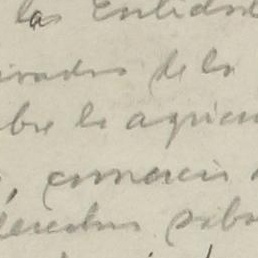 las Entidad
ivados de la
bre la agricu
, comercio
derechos sob